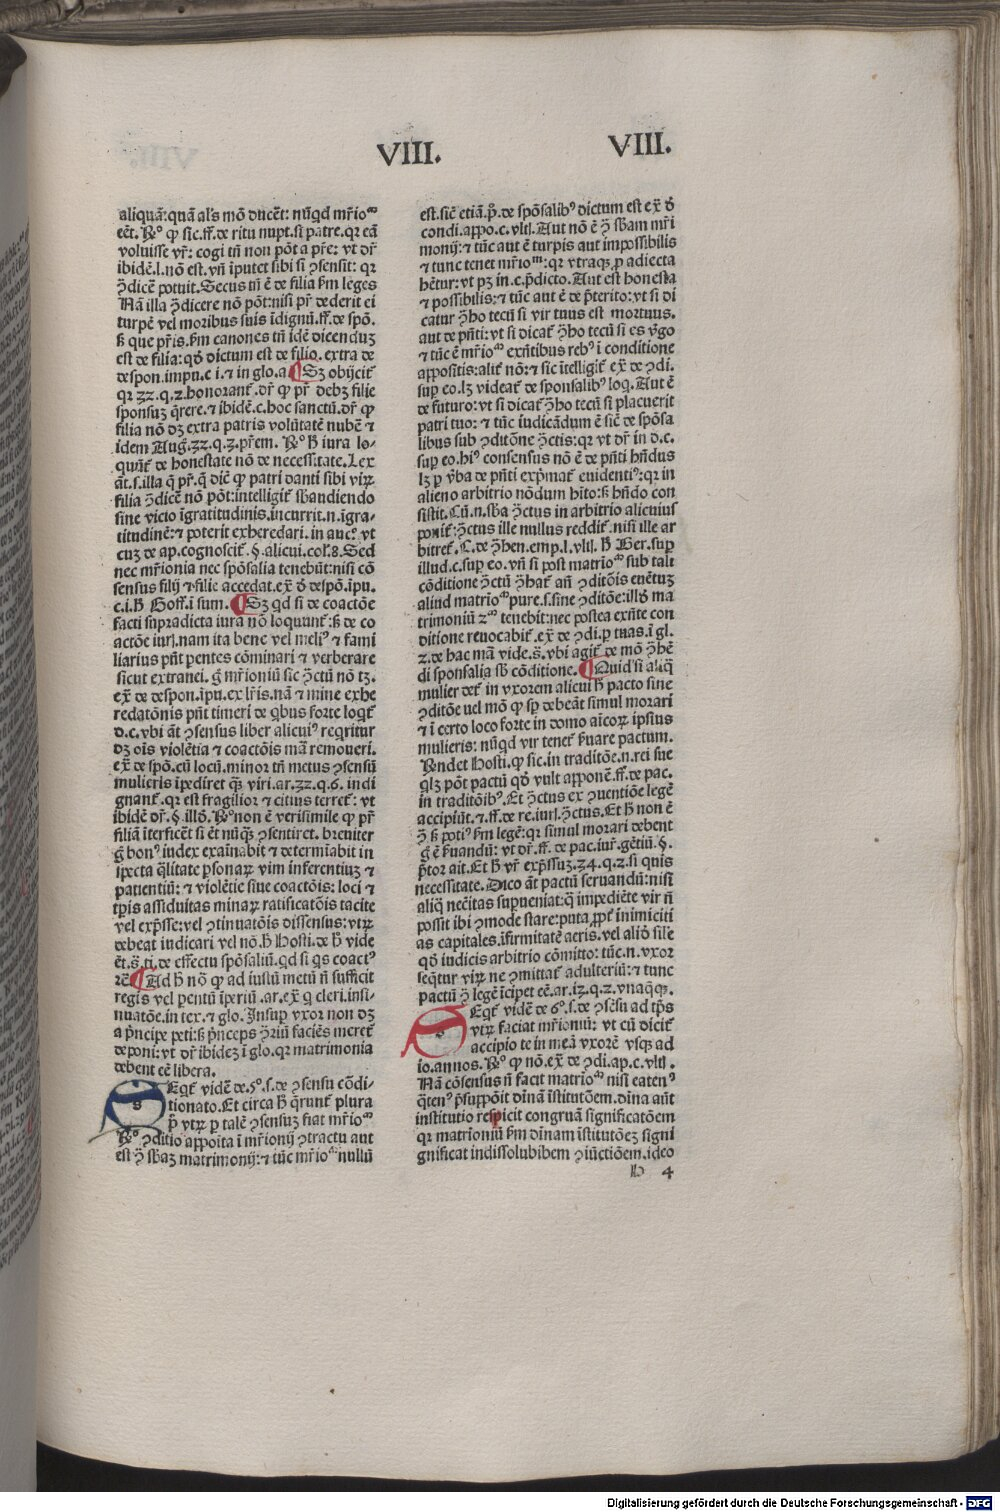 VIII. VIII.
aliquā: quā al's mō ducēt: nūqd mr̄ioᵐ
eēt. R̄º ꝙ sic. ff. de ritu nupt. si patre. qr eā
voluisse vr̄: cogi tn̄ non pōt a pr̄e: vt dr̄
ibidē. l. nō est. vn̄ īputet sibi si ꝯsensit: qr
ꝯdicē potuit. Secus tn̄ ē de filia ẜm leges
Nā illa ꝯdicere nō pōt: nisi pr̄ dederit ei
turpē vel moribus suis īdignū. ff. de spō.
ß que pr̄is. ẜm canones tn̄ idē dicenduȝ
est de filia: qđ dictum est de filio. extra de
despon. impu. c i. ⁊ in glo. a ¶ Sȝ obijcit̄
qr ȝȝ. q. ȝ. honorant̄. dr̄ ꝙ pr̄ debȝ filie
sponsuȝ q̄rere. ⁊ ibidē. c. hoc sanctū. dr̄ ꝙ
filia nō dȝ extra patris volūtatē nubē ⁊
idem Aug. ȝȝ. q. ȝ. pr̄em. R̄º ħ iura lo-
quūt̄ de honestate nō de necessitate. Lex
āt. s. illa q̄ pr̄. q̄ dic̄ ꝙ patri danti sibi virꝝ
filia ꝯdicē nō pōt: intelligit̄ ẜbandiendo
sine vicio īgratitudinis. incurrit. n. īgra-
titudinē: ⁊ poterit exheredari. in auc. vt
cuȝ de ap. cognoscit̄. §. alicui. col'. 8. Sed
nec mr̄ionia nec spōsalia tenebūt: nisi cō
sensus filij ⁊ filie accedat. ex̄ đ despō. īpu.
c. i. ħ Goff. ī sum. ¶ Sȝ qd si de coactōe
facti supradicta iura nō loquunt̄: ß de co
actōe iurl. nam ita bene vel meli⁹ ⁊ fami
liarius pn̄t pentes cōminari ⁊ verberare
sicut extranei. ḡ mr̄ioniū sic ꝯctū nō tȝ.
ex̄ de despon. īpu. ex lr̄is. nā ⁊ mine exhe
redatōnis pn̄t timeri de qbus forte loqt̄
d. c. vbi āt ꝯsensus liber alicui⁹ reqritur
dȝ oīs violētia ⁊ coactōis mā remoueri.
ex̄ de spō. cū locū. minor tn̄ metus ꝯsensū
mulieris īpediret qȝ viri. ar. ȝȝ. q. 6. indi
gnant̄. qr est fragilior ⁊ citius terret̄: vt
ibidē dr̄. §. illđ. R̄º non ē verisimile ꝙ pr̄
filiā īterficēt si ēt nūqȝ ꝯsentiret. breuiter
ḡ bon⁹ iudex exaīnabit ⁊ determīabit in
ipecta q̄litate ꝑsonarꝝ vim inferentiuȝ ⁊
patientiū: ⁊ violētie siue coactōis: loci ⁊
tp̄is assiduitas minarꝝ ratificatōis tacite
vel exp̄sse: vel ꝯtinuatōis dissensus: vtꝝ
debeat indicari vel nō. ħ Hosti. de ħ vide
ēt. s̄. ti. de effectu spōsaliū. qd si qs coact⁹
rē ¶ Ad ħ nō ꝙ ad iustū metū n̄ sufficit
regis vel pentū īperiū. ar. ex̄ q cleri. insi-
nuatōe. in tex. ⁊ glo. Insup vxor non dȝ
a p̄ncipe peti: ß p̄nceps ꝯriū faciēs mcret̄
deponi: vt dr̄ ibideȝ ī glo. qr matrimonia
debent eē libera.
SEqt̄ vidēd. de. 5º. s. de ꝯsensu cōdi-
tionato. Et circa ħ q̄runt̄ plura
p̄ vtꝝ ꝑ talē ꝯsensuȝ fiat mr̄ioᵐ
R̄º ꝯditio apposita ī mr̄ionij ꝯtractu aut
est ꝯ ẜbaȝ matrimonij: ⁊ tūc mr̄ioᵐ nullū
est. sic̄ etiā. p̄. de spōsalib⁹ dictum est ex̄ đ
condi. appo. c. vltī. Aut nō ē ꝯ ẜbam mr̄i
monij: ⁊ tūc aut ē turpis aut impossibilis
⁊ tunc tenet mr̄ioᵐ: qr vtraqȝ ꝓ adiecta
hētur: vt pȝ in. c. p̄dicto. Aut est honesta
⁊ possibilis: ⁊ tūc aut ē de p̄terito: vt si di
catur ꝯho tecū si vir tuus est mortuus.
aut de pn̄ti: vt si dicat̄ ꝯho tecū si es v̄go
⁊ tūc ē mr̄ioᵐ exn̄tibus reb⁹ ī conditione
appositis: alit̄ nō: ⁊ sic ītelligit̄ ex̄ de ꝯdi.
sup eo. lȝ videat̄ de sponsalib⁹ loq. Aut ē
de futuro: vt si dicat̄ ꝯho tecū si placuerit
patri tuo: ⁊ tūc iudicādum ē sic̄ de spōsa
libus sub ꝯditōne ꝯctis: qr vt dr̄ in d. c.
sup eo. hi⁹ consensus nō ē de pn̄ti hn̄dus
lȝ ꝑ v̄ba de pn̄ti exp̄mat̄ euidenti⁹: qr in
alieno arbitrio nōdum hīto: ß hn̄do con
sistit. Cū. n. ẜba ꝯctus in arbitrio alicuius
ponit̄ ꝯctus ille nullus reddit̄. nisi ille ar
bitret̄. C. de ꝯhen. emp. l. vltī. ħ Ber. sup
illud. c. sup eo. vn̄ si post matrioᵐ sub tali
cōditione ꝯctū ꝯhat̄ an̄ ꝯditōis euētuȝ
aliud matrioᵐ pure. s. sine ꝯditōe: illđ ma
trimoniū 2ᵐ tenebit: nec postea exn̄te con
ditione reuocabit̄. ex̄ de ꝯdi. ꝑ tuas. ī gl.
2. de hac mā vide. s̄. vbi agit̄ de mō ꝯhē
di sponsalia sb̄ cōditione. ¶ Quid si aliq̄
mulier det̄ in vxorem alicui ħ pacto sine
ꝯditōe uel mō ꝙ sp̄ debeāt simul morari
⁊ ī certo loco forte in domo aīcoꝝ ipsius
mulieris: nūqd vir tenet̄ ẜuare pactum.
R̄ndet Hosti. ꝙ sic. in traditōe. n. rei sue
qlȝ pōt pactū qđ vult apponē. ff. de pac.
in traditōib⁹. Et ꝯctus ex ꝯuentiōe legē
accipiūt. ⁊. ff. de re. iurl. ꝯctus. Et ħ non ē
ꝯ ß poti⁹ ẜm legē: qr simul morari debent
ḡ ē ẜuandū: vt dr̄. ff. de pac. iur. gētiū. §.
p̄tor ait. Et ħ vr̄ exp̄ssuȝ. 24. q. 2. si quis
necessitate. Dico āt pactū seruandū: nisi
aliq̄ nec̄itas supueniat: q̄ impediēte vir n̄
possit ibi ꝯmode stare: puta ꝓpt̄ inimiciti
as capitales. īfirmitatē aeris. vel aliđ sile
qđ iudicis arbitrio cōmitto: tūc. n. vxor
seq̄tur virꝝ ne ꝯmittat̄ adulteriū: ⁊ tunc
pactū ꝯ legē īcipet eē. ar. 12. q. 2. vnaqȝ.
SEqt̄ vidēd de 6º. s. de ꝯsēsu ad tp̄s
vtꝝ faciat mr̄ioniū: vt cū dicit̄
accipio te in meā vxorē vsqȝ ad
io. annos. R̄º ꝙ nō. ex̄ de ꝯdi. ap. c. vltī.
Nā cōsensus n̄ facit matrioᵐ nisi eaten⁹
q̄ten⁹ p̄supponit dīnā īstitutōem. dīna aūt
institutio respicit congruā significatōem
qr matrioniū ẜm dīnam īstitutōeȝ signi
gnificat indissolubibem ꝯiūctiōem. ideo
h 4
Digitalisierung gefördert durch die Deutsche Forschungsgemeinschaft - DFG